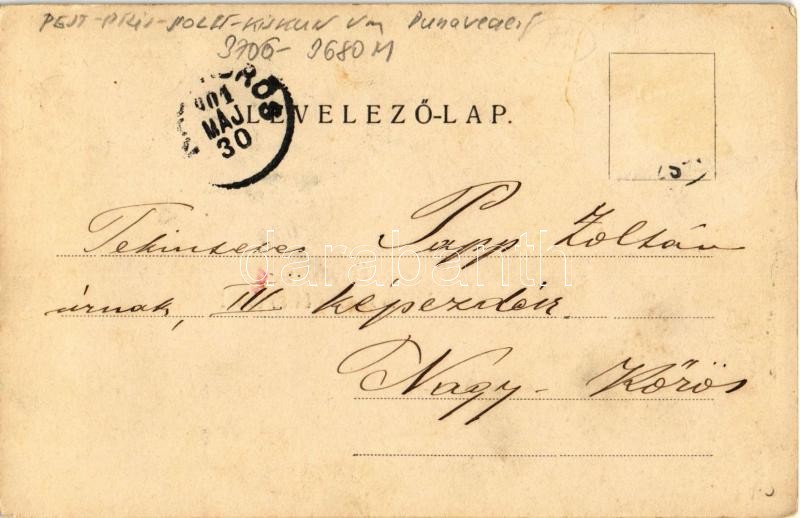 PEST-PILIS-SOLT-KISKUN Vm Dunavecse
3706- 9680 M
KŐRÖS
901
MÁJ.
30
LEVELEZŐ-LAP.
Tekintetes Papp Zoltán
úrnak, IV képezdész.
Nagy-Kőrös
darabanth